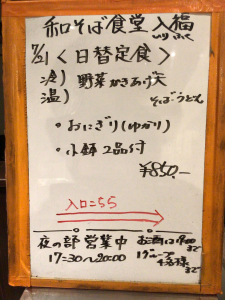 和そば食堂 入福
いりふく
7/21 <日替定食>
冷) 野菜かきあげ天
温) そば・うどん
・おにぎり(ゆかり)
・小鉢2品付
¥850.-
入口=55
夜の部 営業中
17:30〜20:00
お酒は19:00まで
1グループ4名様まで